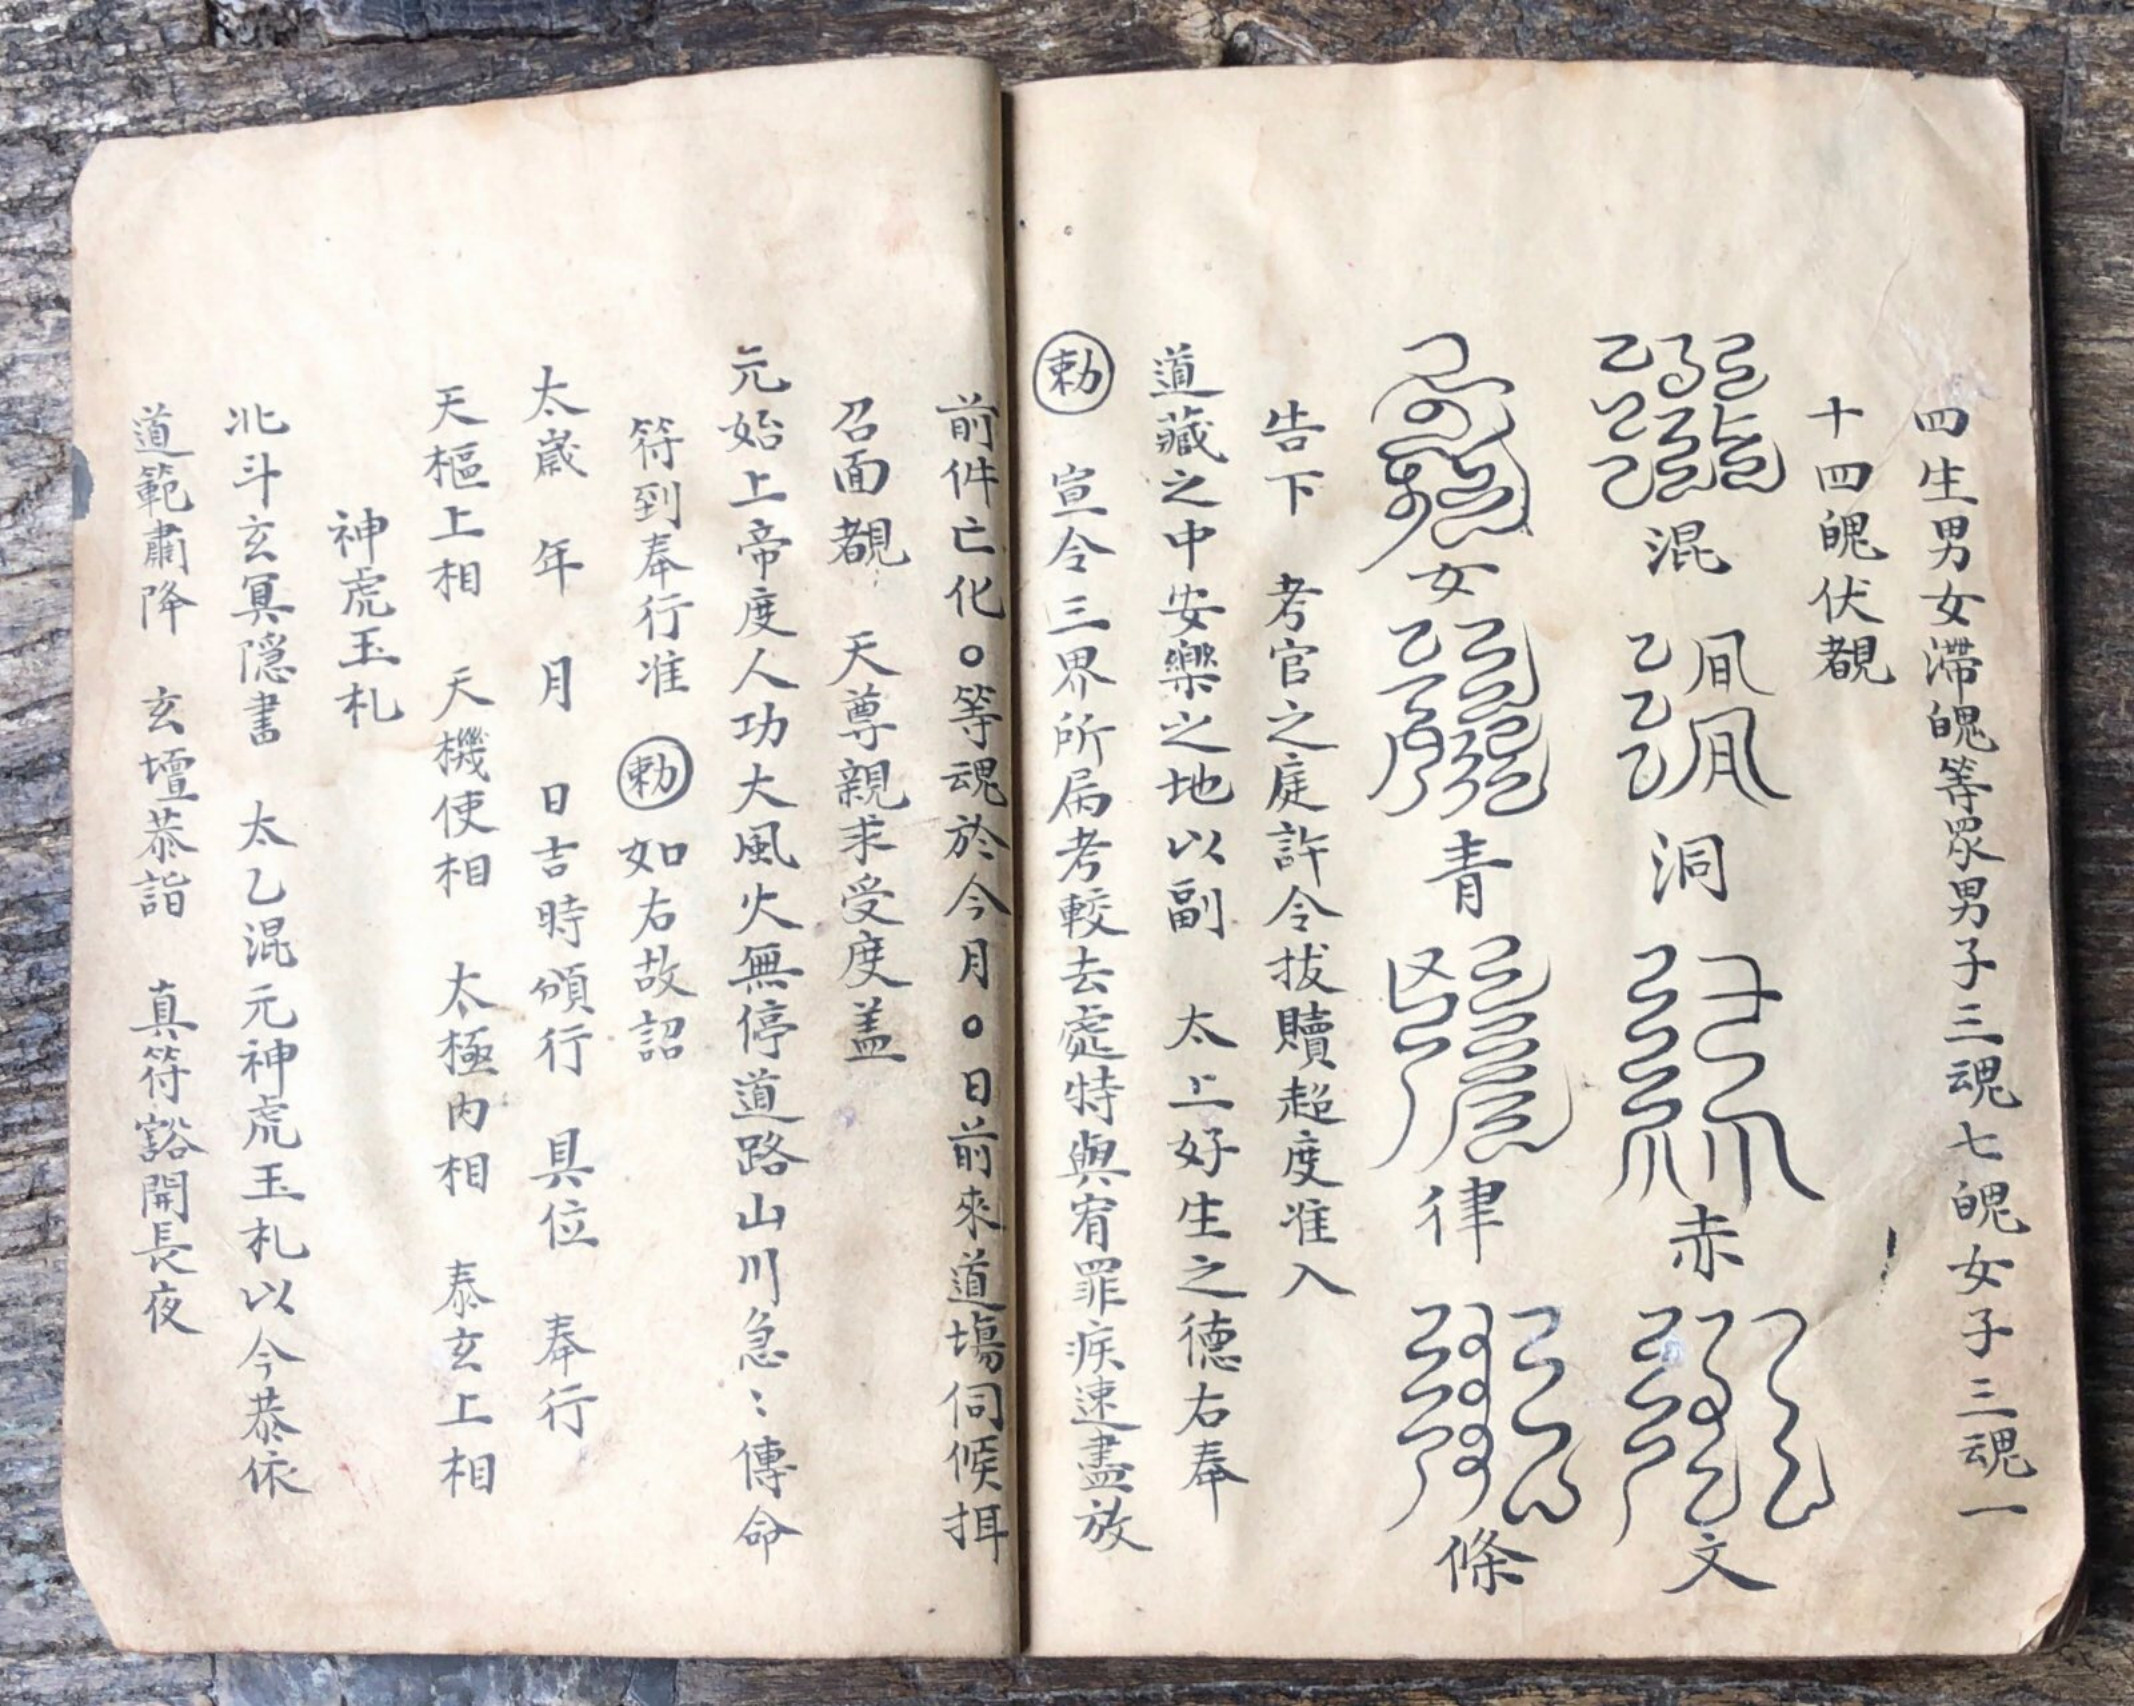 四生男女滯魄等眾男子三魂七魄女子三魂一
十四魄伏覩
混 洞 赤 文
女 青 律 條
告下 考官之庭許令拔贖超度准入
道藏之中安樂之地以副 太上好生之德右奉
勅 宣令三界所屆考較去處特與宥罪疾速盡放
前件亡化○等魂於今月○日前來道場伺候
召面覩 天尊親求受度盖
元始上帝度人功大風火無停道路山川急〻傳命
符到奉行准 勅 如右故詔
太歲 年 月 日吉時頒行 具位 奉行
天樞上相 天機使相 太極內相 泰玄上相
神虎玉札
北斗玄冥隱書 太乙混元神虎玉札以今恭依
道範肅降 玄壇恭詣 真符豁開長夜